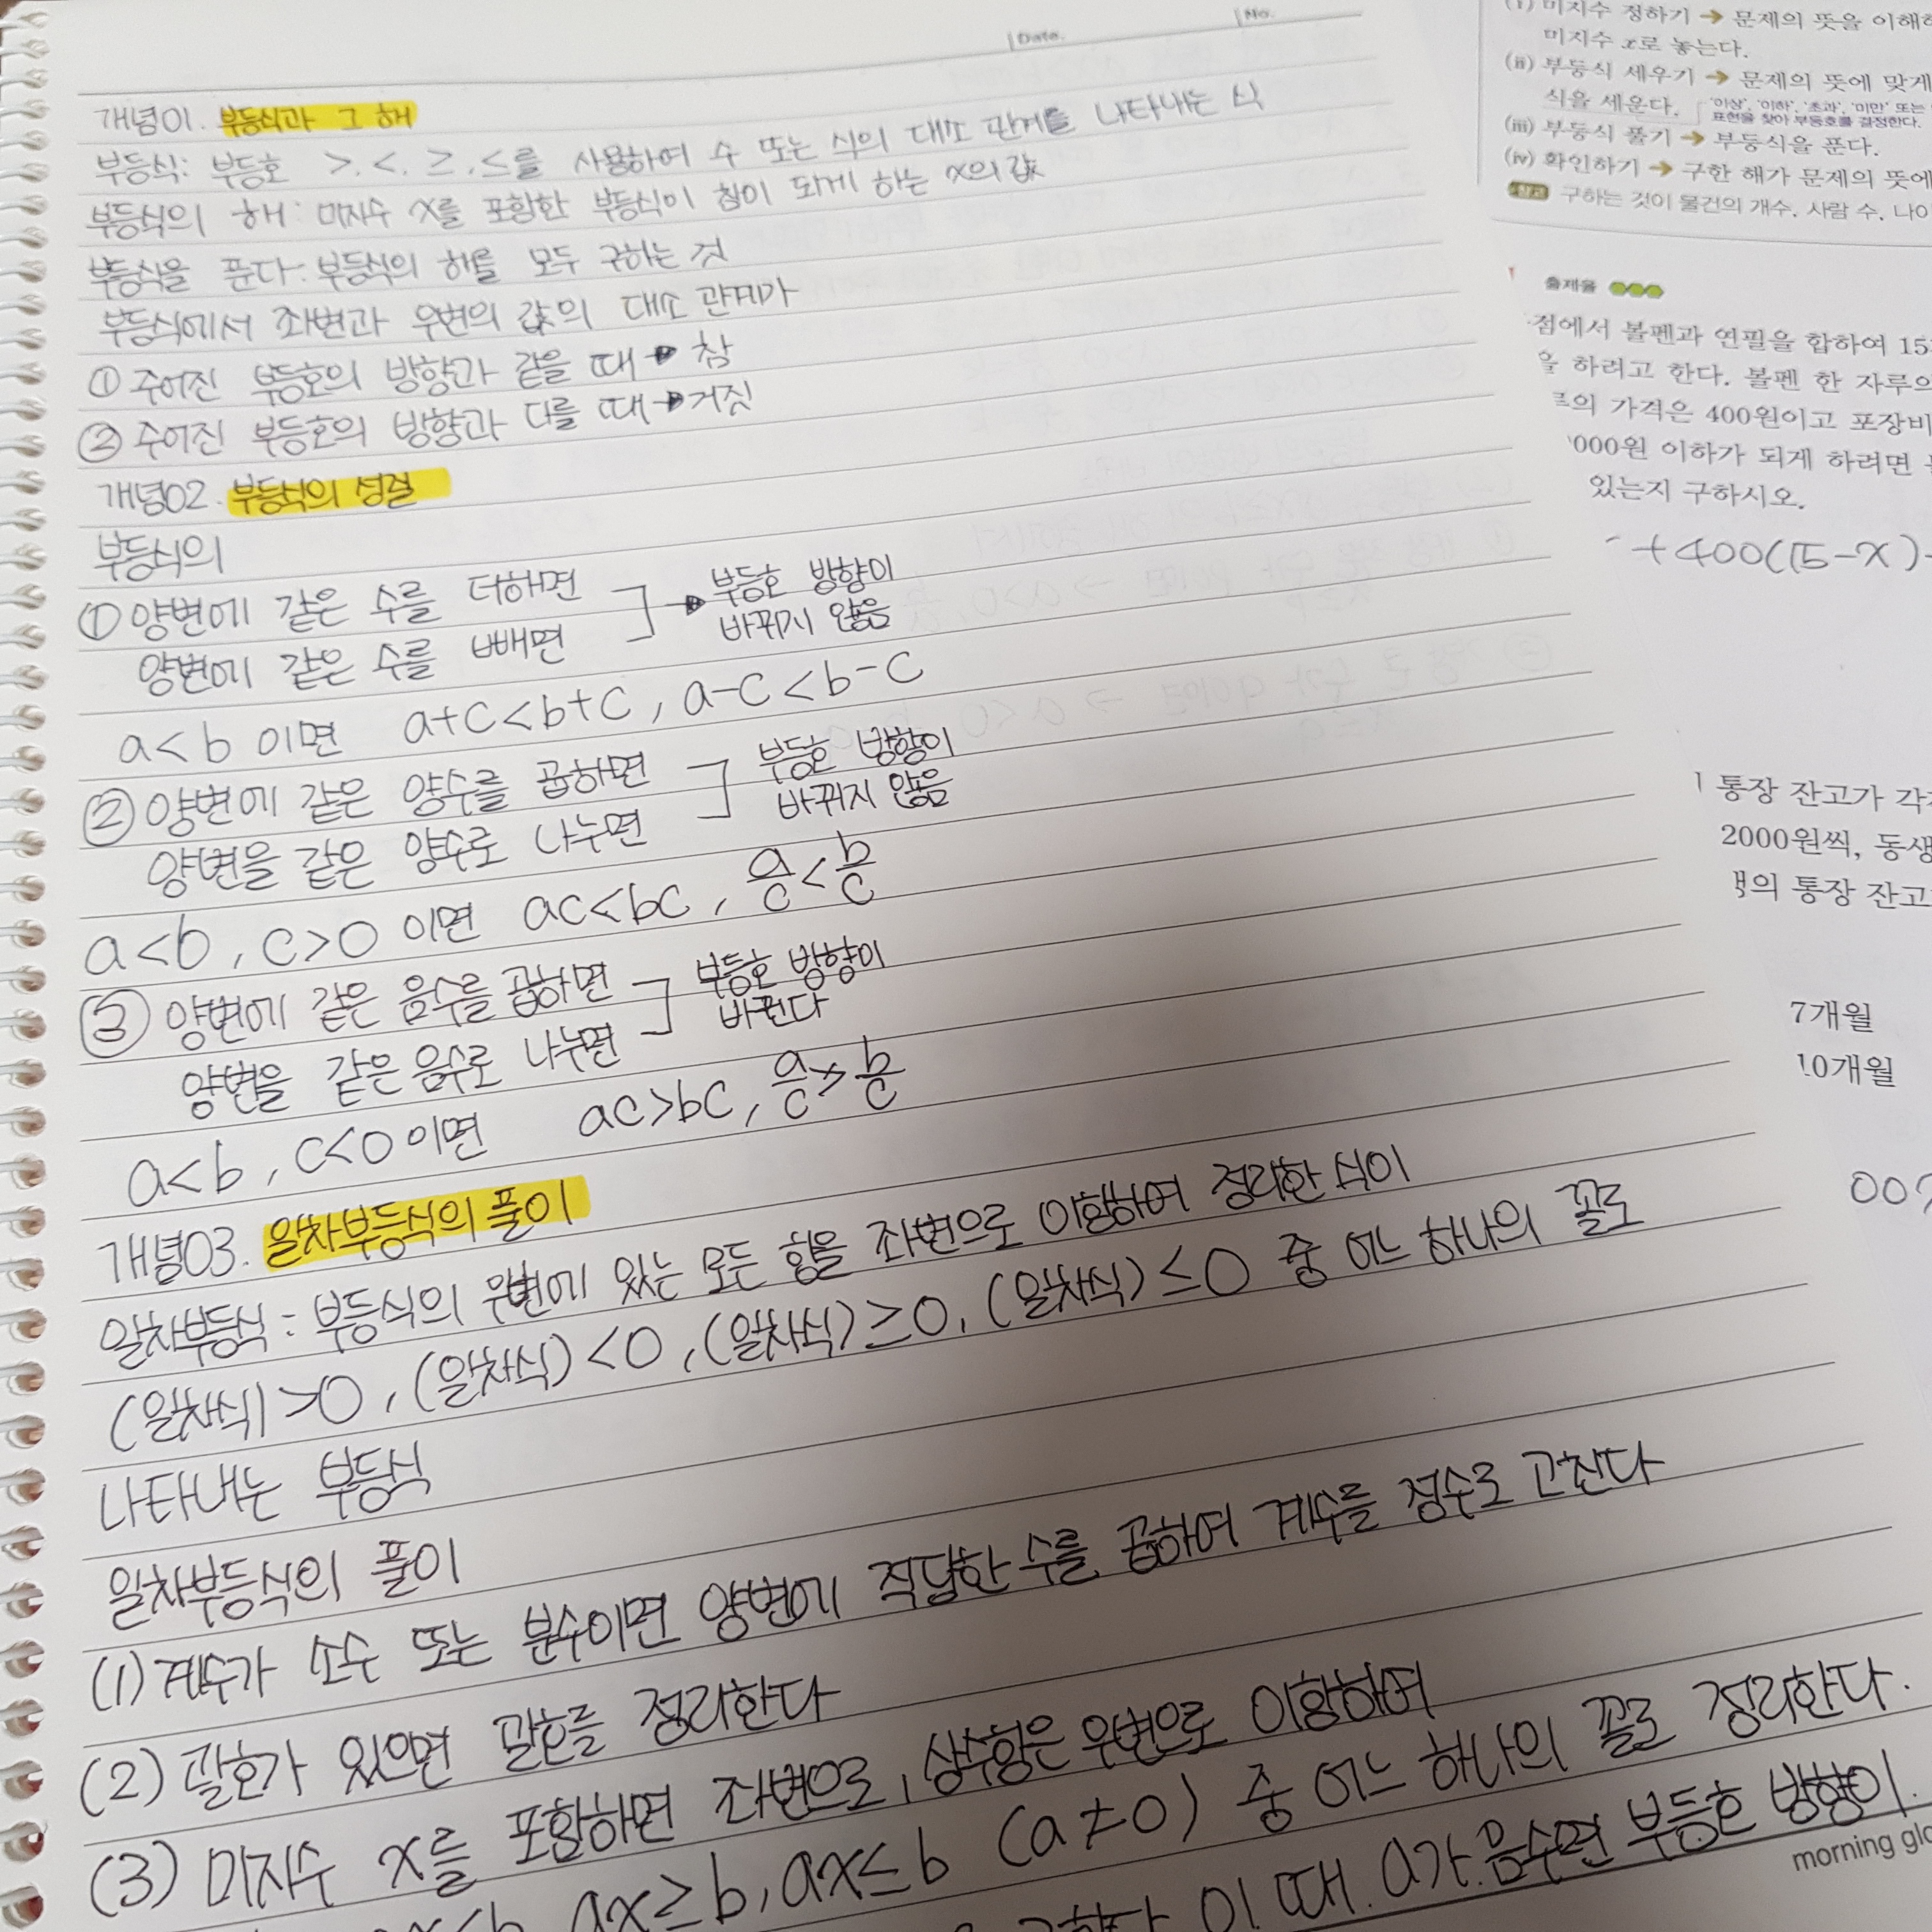 Date.
No.
개념01. 부등식과 그 해
부등식: 부등호 >, <, ≥, ≤를 사용하여 수 또는 식의 대소 관계를 나타내는 식
부등식의 해: 미지수 x를 포함한 부등식이 참이 되게 하는 x의 값
부등식을 푼다: 부등식의 해를 모두 구하는 것
부등식에서 좌변과 우변의 값의 대소 관계가
① 주어진 부등호의 방향과 같을 때 → 참
② 주어진 부등호의 방향과 다를 때 → 거짓
개념02. 부등식의 성질
부등식의
① 양변에 같은 수를 더하면
양변에 같은 수를 빼면
→ 부등호 방향이
바뀌지 않음
a<b 이면 a+c<b+c, a-c<b-c
② 양변에 같은 양수를 곱하면
양변을 같은 양수로 나누면
부등호 방향이
바뀌지 않음
a<b, c>0 이면 ac<bc, a/c<b/c
③ 양변에 같은 음수를 곱하면
양변을 같은 음수로 나누면
부등호 방향이
바뀐다
a<b, c<0 이면 ac>bc, a/c>b/c
개념03. 일차부등식의 풀이
일차부등식: 부등식의 우변에 있는 모든 항을 좌변으로 이항하여 정리한 식이
(일차식)>0, (일차식)<0, (일차식)≥0, (일차식)≤0 중 어느 하나의 꼴로
나타내는 부등식
일차부등식의 풀이
(1) 계수가 소수 또는 분수이면 양변에 적당한 수를 곱하여 계수를 정수로 고친다
(2) 괄호가 있으면 괄호를 정리한다
(3) 미지수 x를 포함하면 좌변으로, 상수항은 우변으로 이항하여
ax≥b, ax≤b (a≠0) 중 어느 하나의 꼴로 정리한다.
이 때. a가 음수면 부등호 방향이
morning glo
(i) 미지수 정하기 → 문제의 뜻을 이해하
미지수 x로 놓는다.
(ii) 부등식 세우기 → 문제의 뜻에 맞게
식을 세운다.
'이상', '이하', '초과', '미만' 또는
표현을 찾아 부등호를 결정한다.
(iii) 부등식 풀기 → 부등식을 푼다.
(iv) 확인하기 → 구한 해가 문제의 뜻에
참고 구하는 것이 물건의 개수, 사람 수, 나이
출제율
점에서 볼펜과 연필을 합하여 15
을 하려고 한다. 볼펜 한 자루의
의 가격은 400원이고 포장비
000원 이하가 되게 하려면
있는지 구하시오.
+400(15-x)
통장 잔고가 각각
2000원씩, 동생
의 통장 잔고
7개월
10개월
00